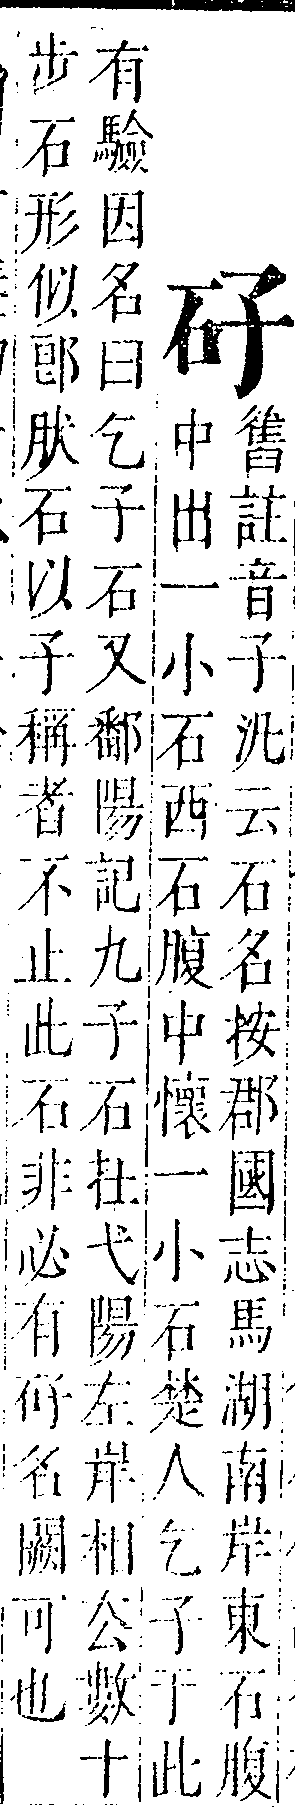 矷
舊註音子汎云石名按郡國志馬湖南岸東石腹
中出一小石西石腹中懷一小石楚人乞子于此
有驗因名曰乞子石又鄱陽記九子石在弋陽左岸相公數十
步石形似郎肰石以子稱者不止此石非必有矷名闕可也